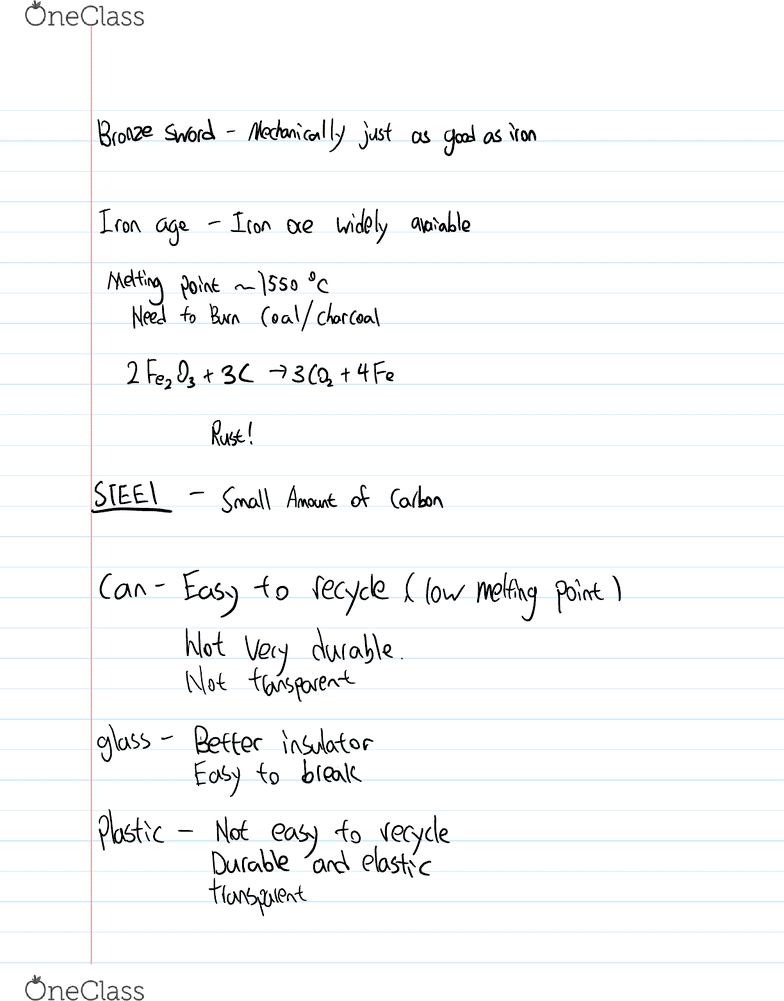 OneClass
Bronze Sword - Mechanically just as good as iron
Iron age - Iron ore widely avaiable
Melting point ~1550 °C
Need to Burn Coal/charcoal
2 Fe₂O₃ + 3C → 3CO₂ + 4Fe
Rust!
STEEl - Small Amount of Carbon
Can - Easy to recycle (low melting point)
Not very durable.
Not transparent
glass - Better insulator
Easy to break
Plastic - Not easy to recycle
Durable and elastic
transparent
OneClass